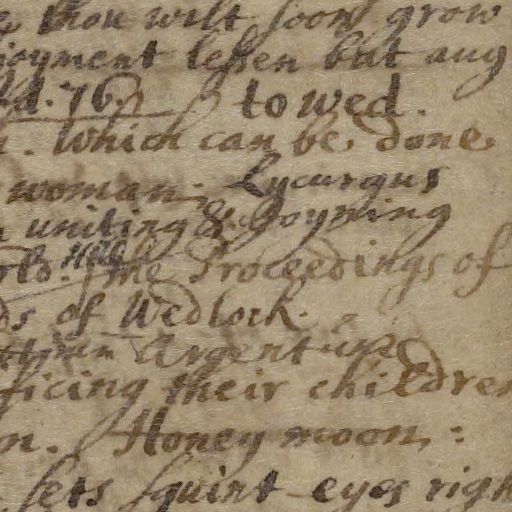 thou wilt soon grow
joyment lessen but aug
d. 76. to wed.
. which can be done
woman. Lycurgus
uniting & Joyning
Hill
the Proceedings of
ds of Wedlock.
Argent
ficing their children
n. Honey moon :
sets squint-eyes righ